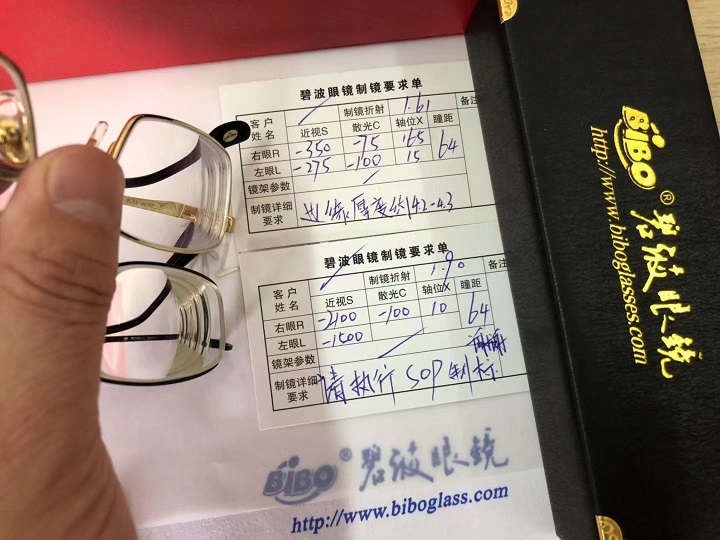 碧波眼镜制镜要求单
客户姓名 制镜折射 1.61 备注
近视S 散光C 轴位X 瞳距
右眼R -350 -75 165 64
左眼L -275 -100 15
镜架参数
制镜详细要求 边缘厚度约4.2-4.3
碧波眼镜制镜要求单
客户姓名 制镜折射 1.90 备注
近视S 散光C 轴位X 瞳距
右眼R -2100 -100 10 64
左眼L -1500
镜架参数
制镜详细要求 请执行SOP制标
BiBO® 碧波眼镜
http://www.biboglass.com
BiBO® 碧波眼镜
http://www.biboglasses.com